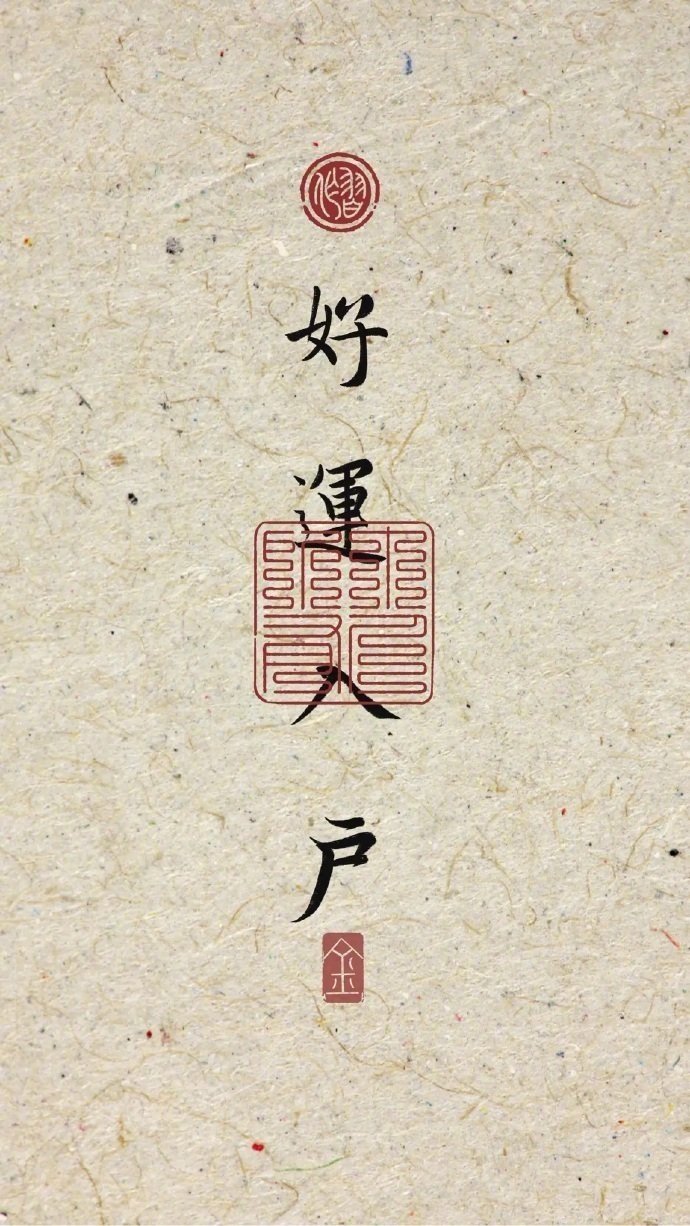 好運入戶
金